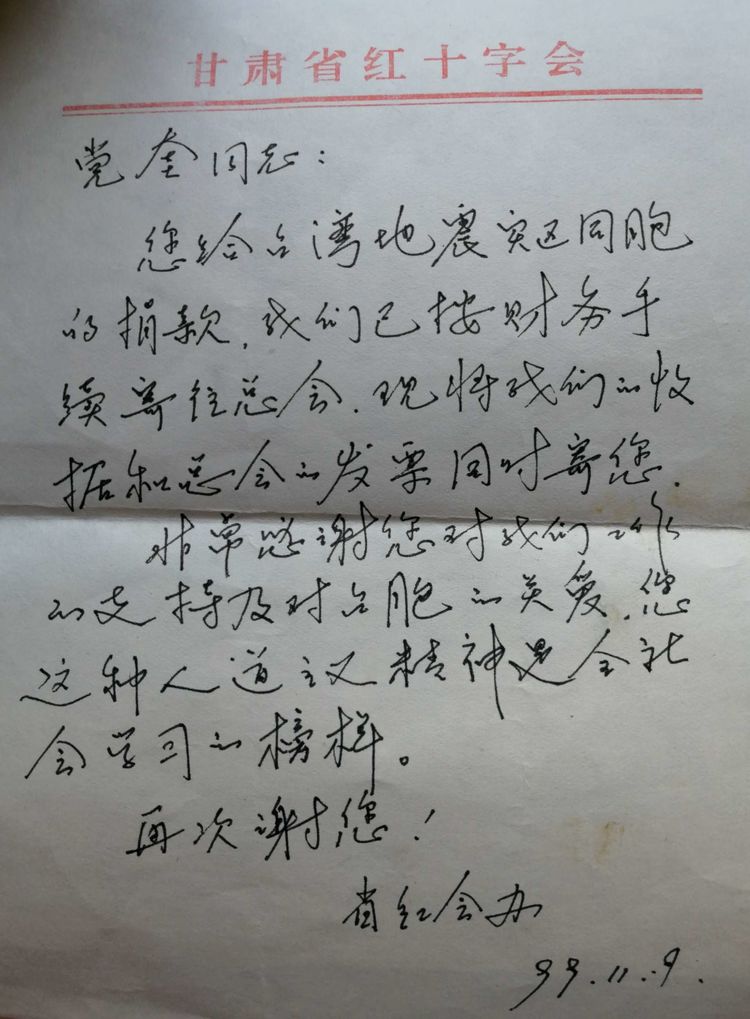 甘肃省红十字会
党奎同志：
您给台湾地震灾区同胞
的捐款，我们已按财务手
续寄往总会，现将我们的收
据和总会的发票同时寄您．
非常感谢您对我们工作
的支持及对台胞的关爱，您
这种人道主义精神是全社
会学习的榜样。
再次谢您！
省红会办
99.11.9.